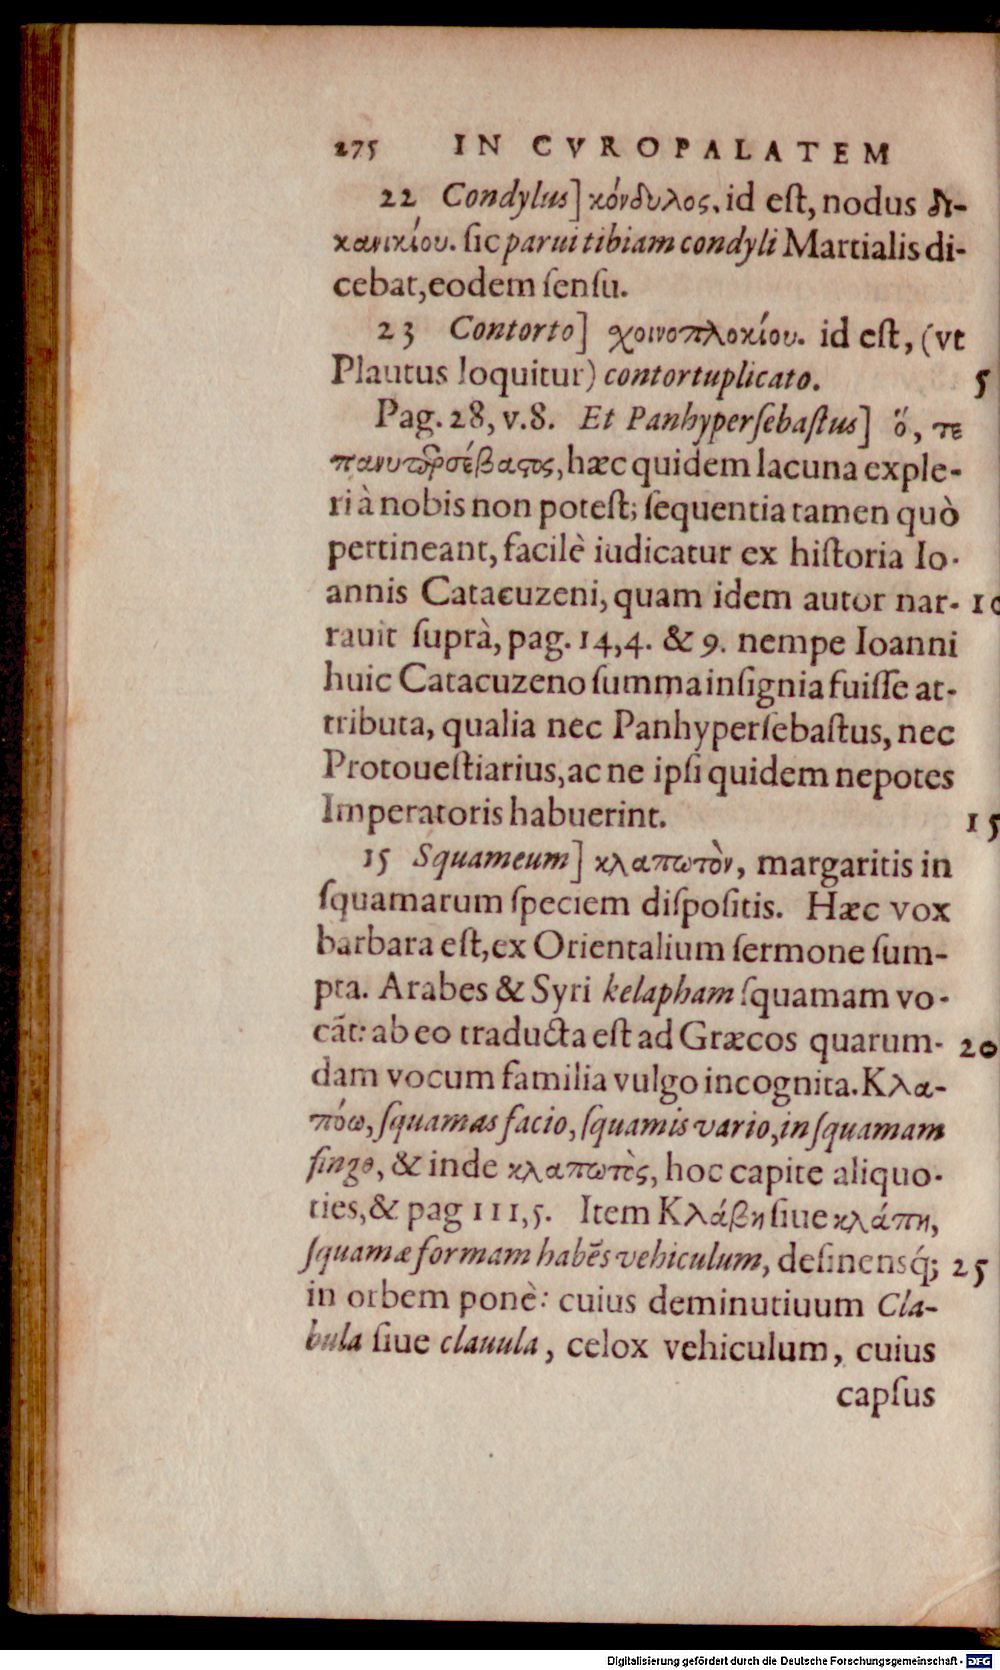 275 IN CVROPALATEM
22 Condylus] κόνδυλος. id eſt, nodus δι-
κανικίου. ſic parui tibiam condyli Martialis di-
cebat, eodem ſenſu.
23 Contorto] χοινοπλοκίου. id eſt, (vt
Plautus loquitur) contortuplicato. 5
Pag. 28, v. 8. Et Panhyperſebaſtus] ὅ, τε
πανυπερσέβαστος, hæc quidem lacuna exple-
ri à nobis non poteſt; ſequentia tamen quò
pertineant, facilè iudicatur ex hiſtoria Io-
annis Catacuzeni, quam idem autor nar- 10
rauit ſuprà, pag. 14, 4. & 9. nempe Ioanni
huic Catacuzeno ſumma inſignia fuiſſe at-
tributa, qualia nec Panhyperſebaſtus, nec
Protoueſtiarius, ac ne ipſi quidem nepotes
Imperatoris habuerint. 15
15 Squameum] κλαπωτὸν, margaritis in
ſquamarum ſpeciem diſpoſitis. Hæc vox
barbara eſt, ex Orientalium ſermone ſum-
pta. Arabes & Syri kelapham ſquamam vo-
cãt: ab eo traducta eſt ad Græcos quarum- 20
dam vocum familia vulgo incognita. Κλα-
πόω, ſquamas facio, ſquamis vario, in ſquamam
fingo, & inde κλαπωτὸς, hoc capite aliquo-
ties, & pag 111, 5. Item Κλάβη ſiue κλάπη,
ſquamæ formam habẽs vehiculum, deſinensq́; 25
in orbem ponè: cuius deminutiuum Cla-
bula ſiue clauula, celox vehiculum, cuius
capſus
Digitalisierung gefördert durch die Deutsche Forschungsgemeinschaft - DFG